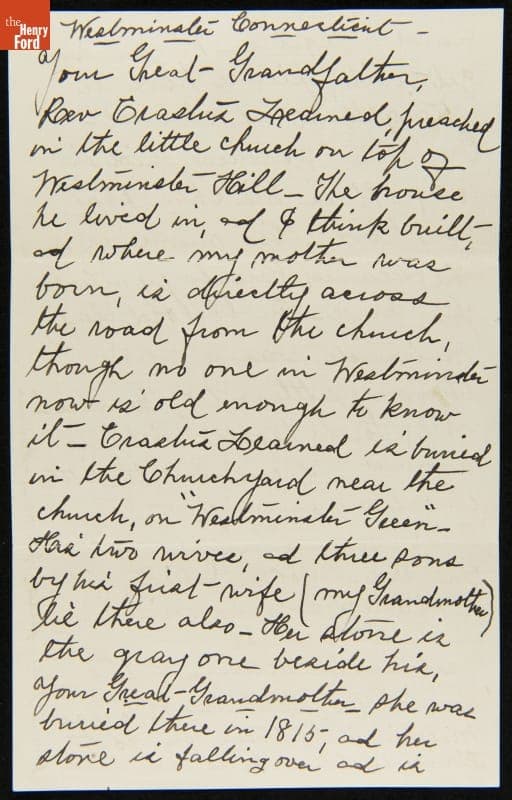 the
Henry
Ford
Westminster Connecticut -
Your Great-Grandfather,
Rev Erastus Learned, preached
in the little church on top of
Westminster Hill - The house
he lived in, ad I think built,
ad where my mother was
born, is directly across
the road from the church,
though no one in Westminster
now is old enough to know
it - Erastus Learned is buried
in the Churchyard near the
church, on "Westminster Green" -
His two wives, ad three sons
by his first wife (my Grandmother)
lie there also - Her stone is
the gray one beside his,
Your Great-Grandmother - she was
buried there in 1815, ad her
stone is falling over ad is